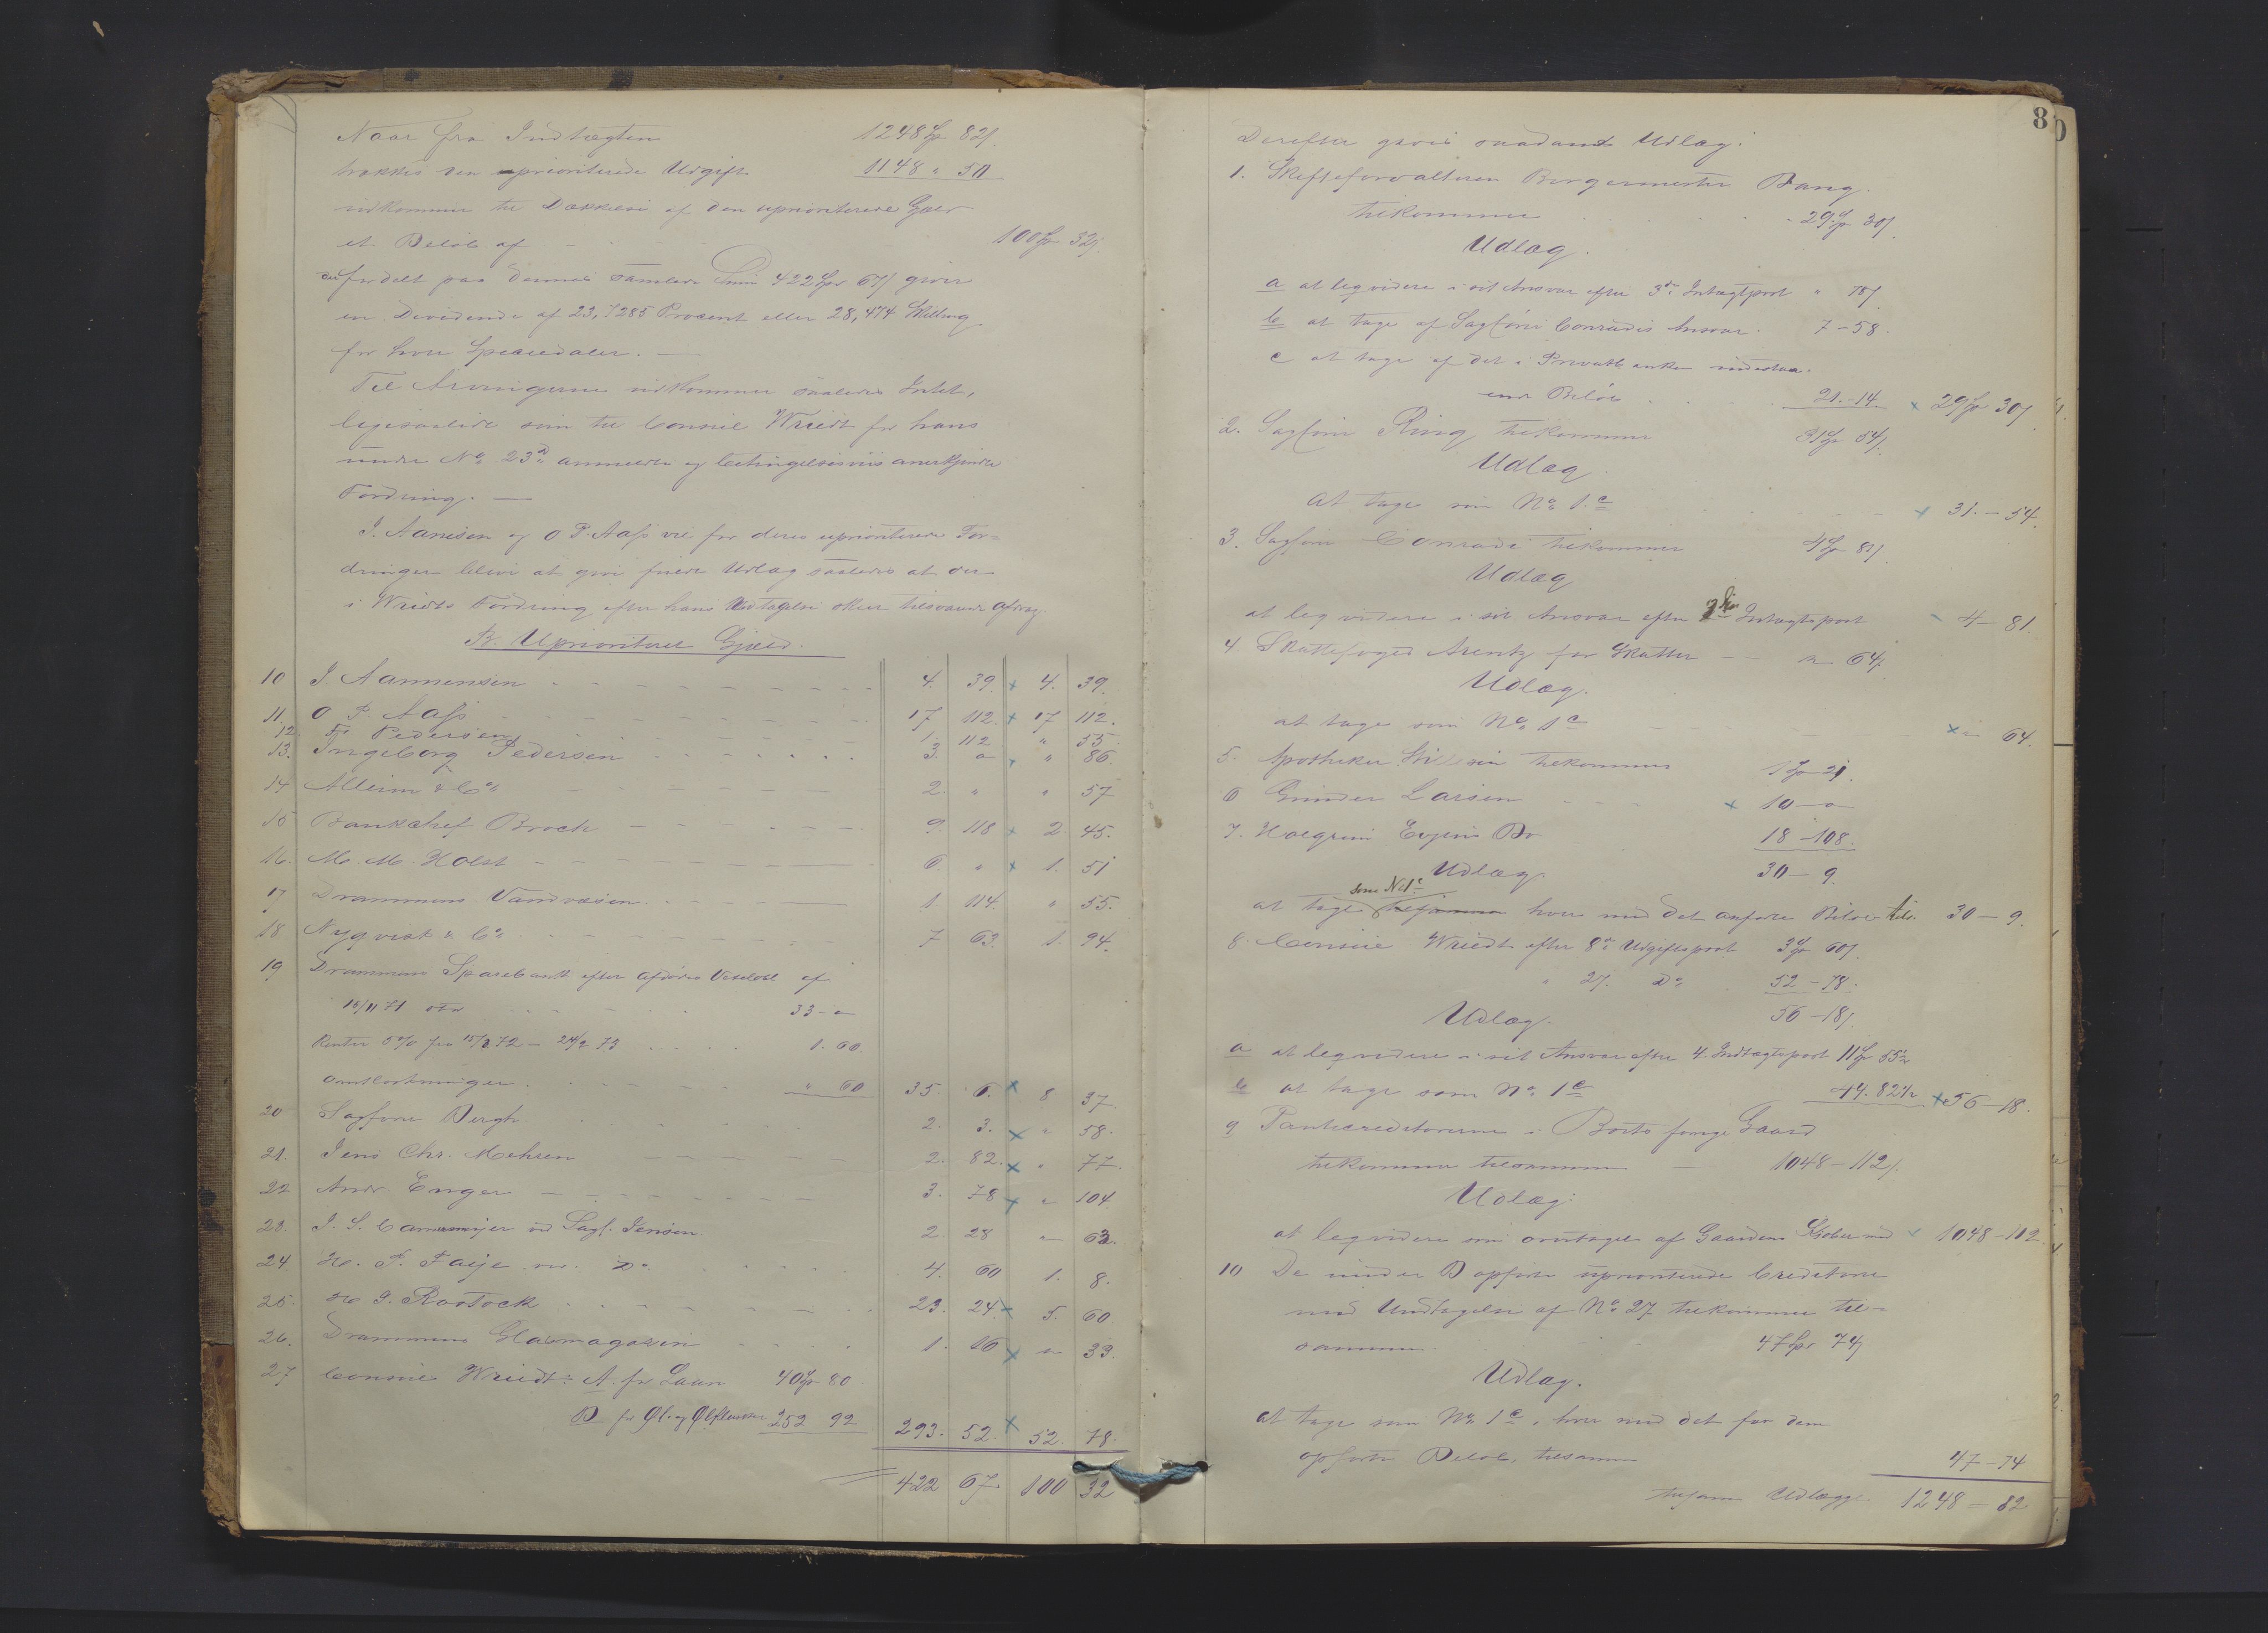 Naar fra Indtægten 1248 Sp 82 s
trækkes den uprioriterede Udgift 1148 " 50
vidkommer til Dækkelse af den uprioriterede Gjæld
et Beløb af 100 Sp 32 s.
der fordelt paa dennes samlede Sum 422 Sp 67 s giver
en Dividende af 23,7285 Procent eller 28,474 Skilling
for hver Speciedaler. —
Til Arvingerne vidkommer saaledes Intet,
ligesaalidt som til Consul Wriedt for hans
under No 23 d anmeldte og betingelsesviis anerkjendte
Fordring. —
J. Aanesen og O P. Aass vil for deres uprioriterede For-
dringer blive at give fuldt Udlæg saaledes at der
i Wriedts Fordring efter hans Vedtagelse skeer tilsvarende Afdrag.
B. Uprioriteret Gjæld.
10 J. Aannensen 4. 39. x 4. 39.
11. O P. Aass 17 112. x 17 112.
12. F. Pedersen 1. 112 " 53.
13. Ingeborg Pedersen 3. " " 86.
14 Allum & Co 2. " " 57
15 Bankchef Broch 9. 118 x 2 45.
16. M. M. Holst 6. " x 1. 51
17 Drammens Vandvæsen 1. 114. " 55.
18 Nyqvist & Co 7 63. 1. 94.
19 Drammens Sparebank efter afdødes Vexelobl af
15/11 71 stor 33 - "
Renter 5% fra 15/3 72 - 24/2 73 1. 60.
Omkostninger " 60 35. 6. x 8 37.
20 Sagfører Bergh 2. 3. x " 58.
21. Jens Chr. Mehren 2. 82. x " 77.
22 Andr Enger 3. 78 x " 104.
23. J. S. Cammermeyer ved Sagf. Jensen 2. 28 " 63.
24 H. P. Faije ved Do 4. 60 1. 8.
25. H J. Rostock 23. 24 x 5. 60
26. Drammens Glasmagazin 1. 16 x " 33.
27 Consul Wriedt: A. for Laan 40 Sp 80
B for Øl- og Ølflasker 252 92 293. 52. x 52. 78.
422 67 100 32
80
Derefter gives saadant Udlæg:
1. Skifteforvalteren Borgermester Bang
tilkommer 29 Sp 30 s
Udlæg.
a at leqvidere i sit Ansvar efter 3die Indtægtpost " 78 s
b at tage af Sagfører Conradis Ansvar. 7 - 58.
c at tage af det i Privatbanken indestaa-
ende Beløb 21. - 14. x 29 Sp 30 s
2. Sagfører Ring tilkommer 31 Sp 54 s.
Udlæg
at tage som No 1 c x 31. - 54.
3. Sagfører Conradi tilkommer 4 Sp 81 s
Udlæg
at leqvidere i sit Ansvar efter Indtægtspost 4 - 81.
4 Skattefoged Arentz for Skatter " 64.
Udlæg.
at tage som No 1 c x " 64.
5. Apotheker tilkommer 1 Sp 21.
6 Gründer Larsen x 10 - "
7. Halgrim Evjens Bo 18 - 108.
Udlæg. 30 - 9.
som No 1 c
at tage tilsammen hver med det anførte Beløb tils. 30 - 9.
8. Consul Wriedt efter 8de Udgiftspost 3 Sp 60 s.
" 27. Do 52 - 78.
Udlæg. 56 - 18 s.
a at leqvidere i sit Ansvar efter 4. Indtægtspost 11 Sp 55 1/2
b at tage som No 1 c 44. 82 1/2 x 56 - 18.
9 Panthcreditorerne i Boets forrige Gaard
tilkommer tilsammen 1048 - 112 s.
Udlæg:
at leqvidere som overtaget af Gaardens Kjøber med x 1048 - 112
10 De under B opførte uprioriterede Creditorer
med Undtagelse af No 27 tilkommer til-
sammen 47 Sp 74 s
Udlæg.
at tage som No 1 c, hver med det for dem
opførte Beløb, tilsammen 47 - 74
tilsammen Udlægge 1248 - 82